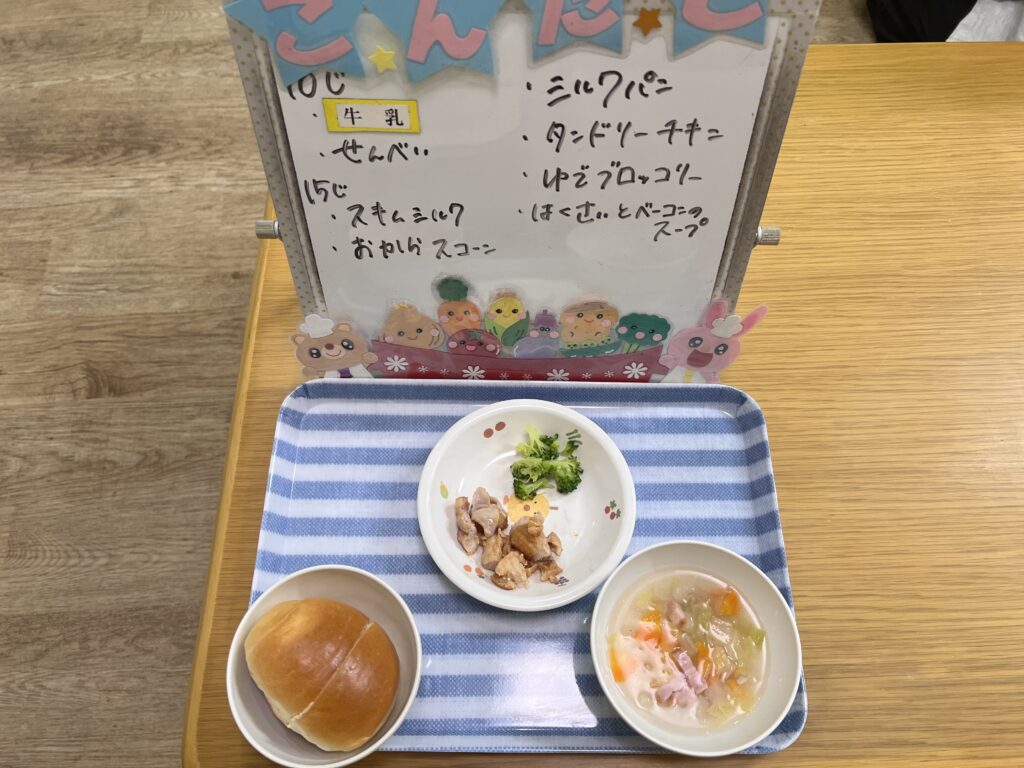 こんだて
10じ
・牛乳
・せんべい
15じ
・スキムミルク
・おからスコーン
・ミルクパン
・タンドリーチキン
・ゆでブロッコリー
・はくさいとベーコンの
スープ